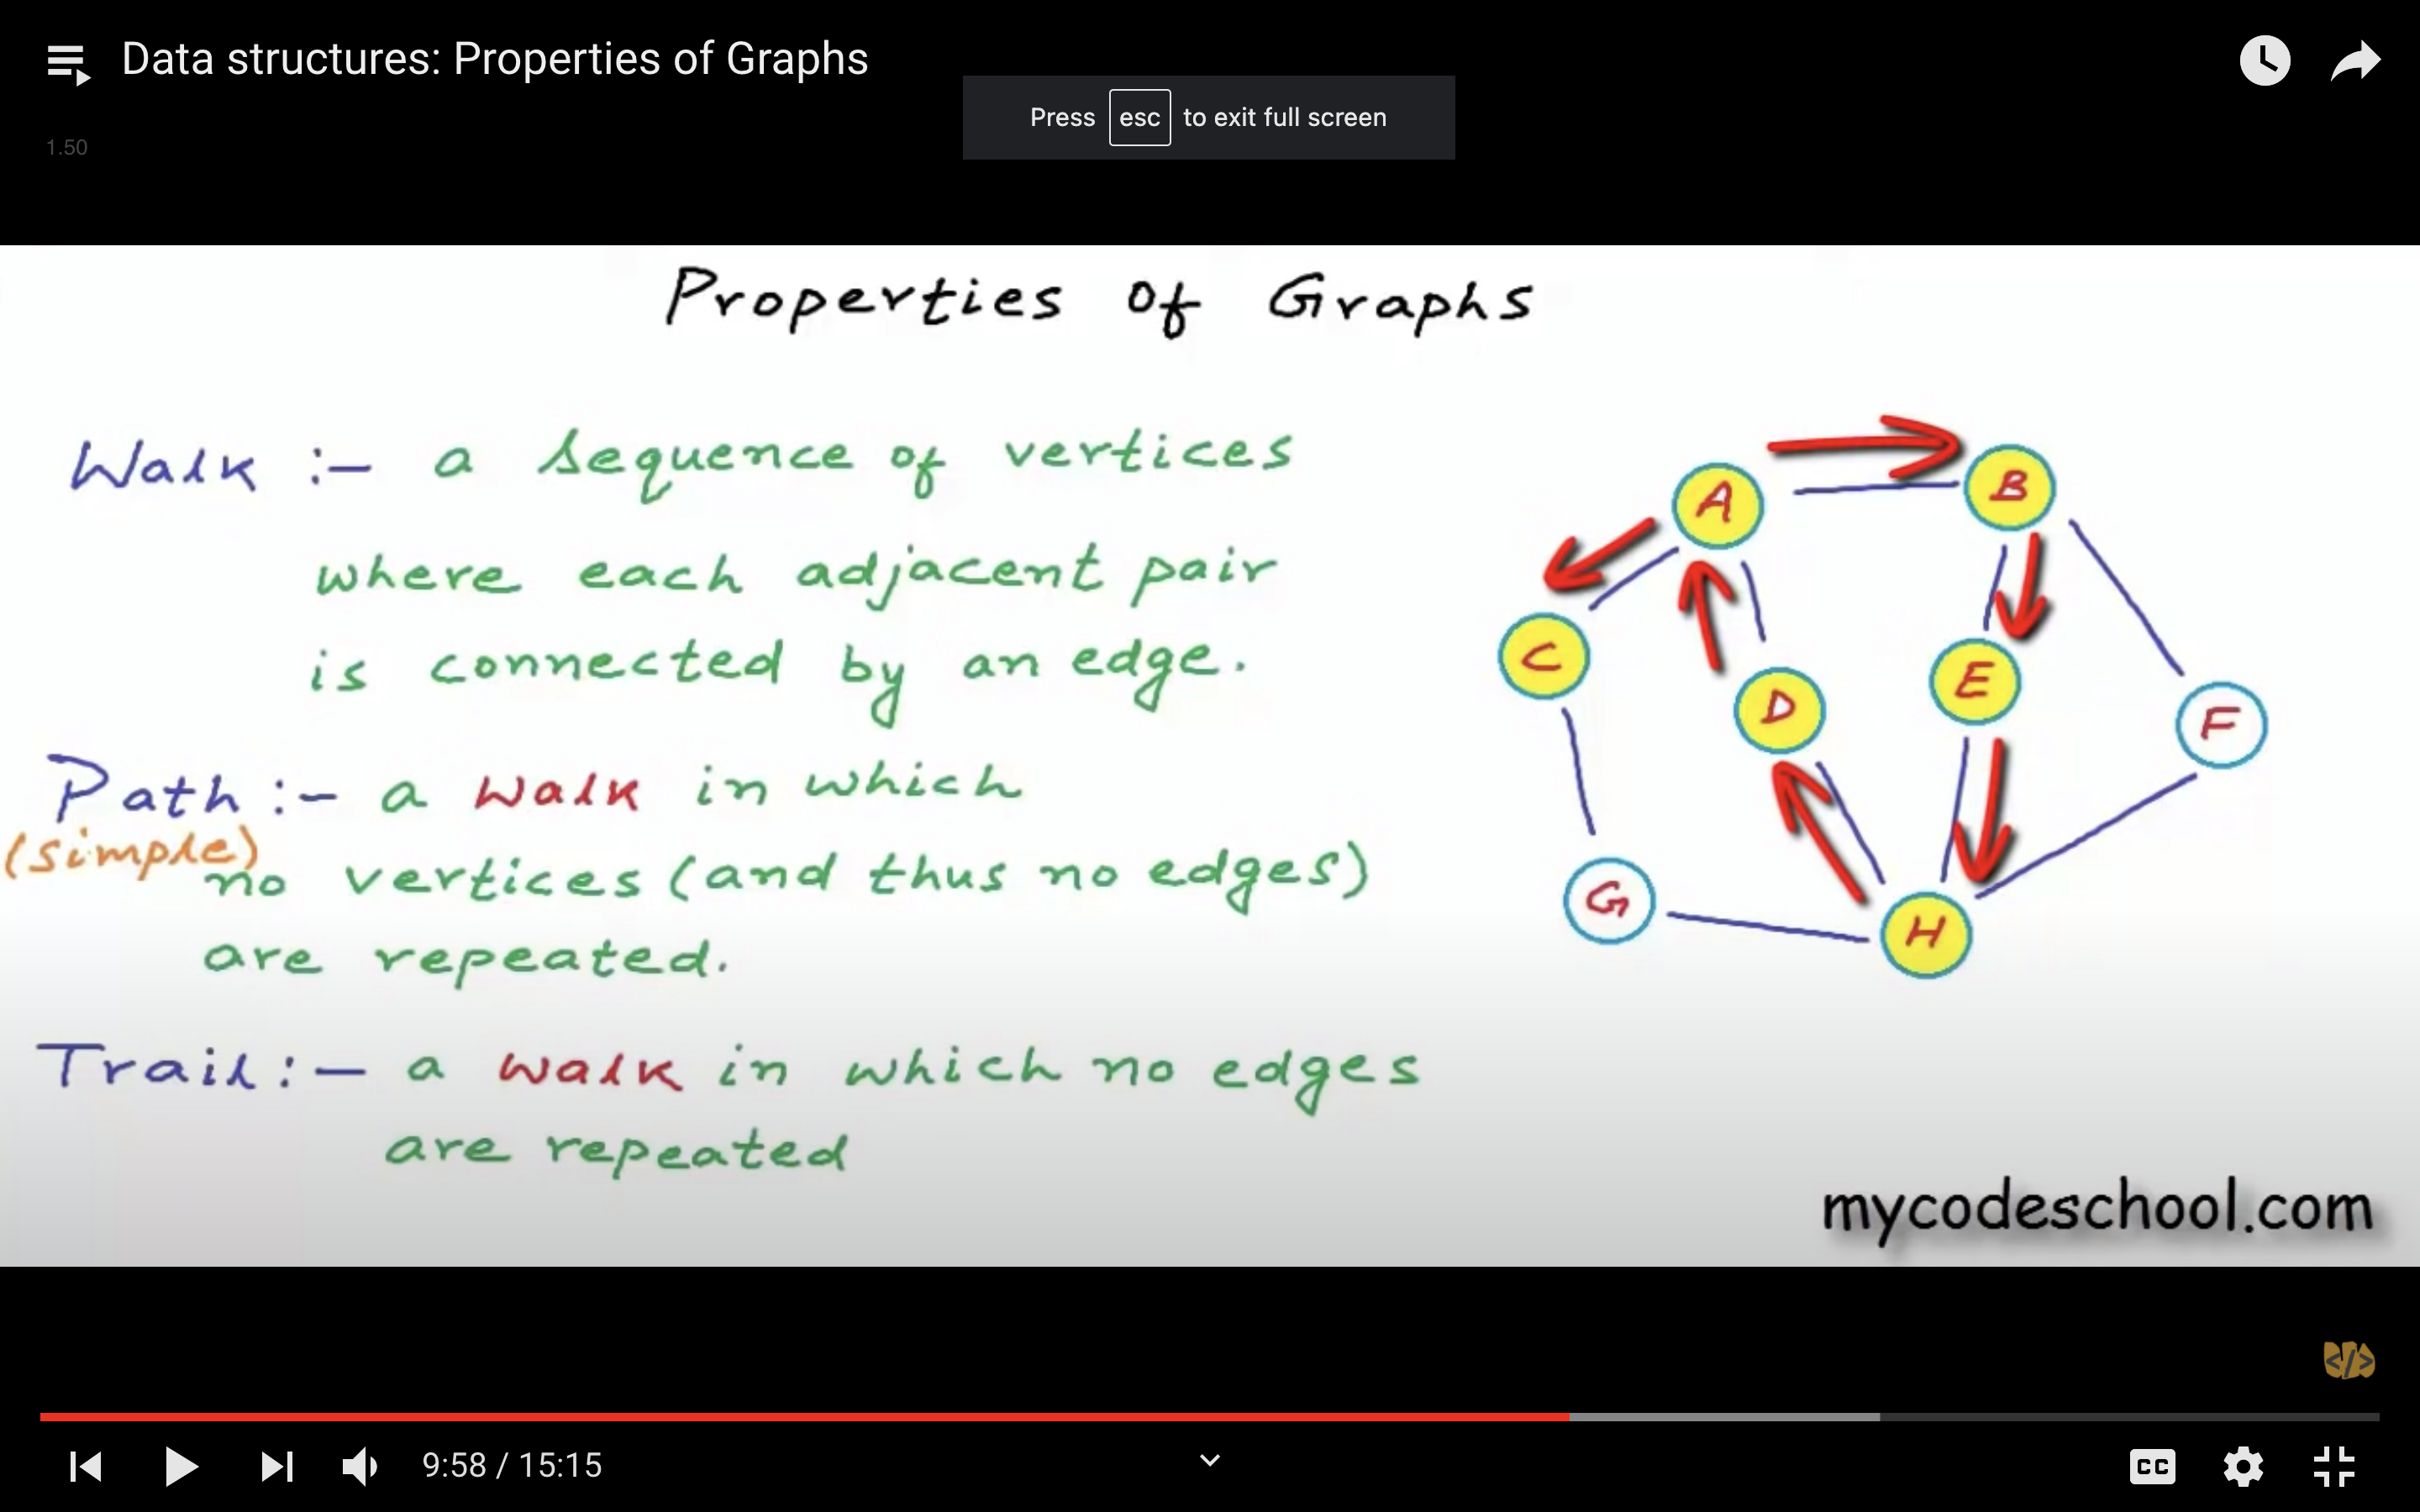 Data structures: Properties of Graphs
Press esc to exit full screen
1.50
Properties of Graphs
Walk :- a sequence of vertices
where each adjacent pair
is connected by an edge.
Path :- a walk in which
(simple)
no vertices (and thus no edges)
are repeated.
Trail :- a walk in which no edges
are repeated
A
B
C
D
E
F
G
H
mycodeschool.com
</>
9:58 / 15:15
CC